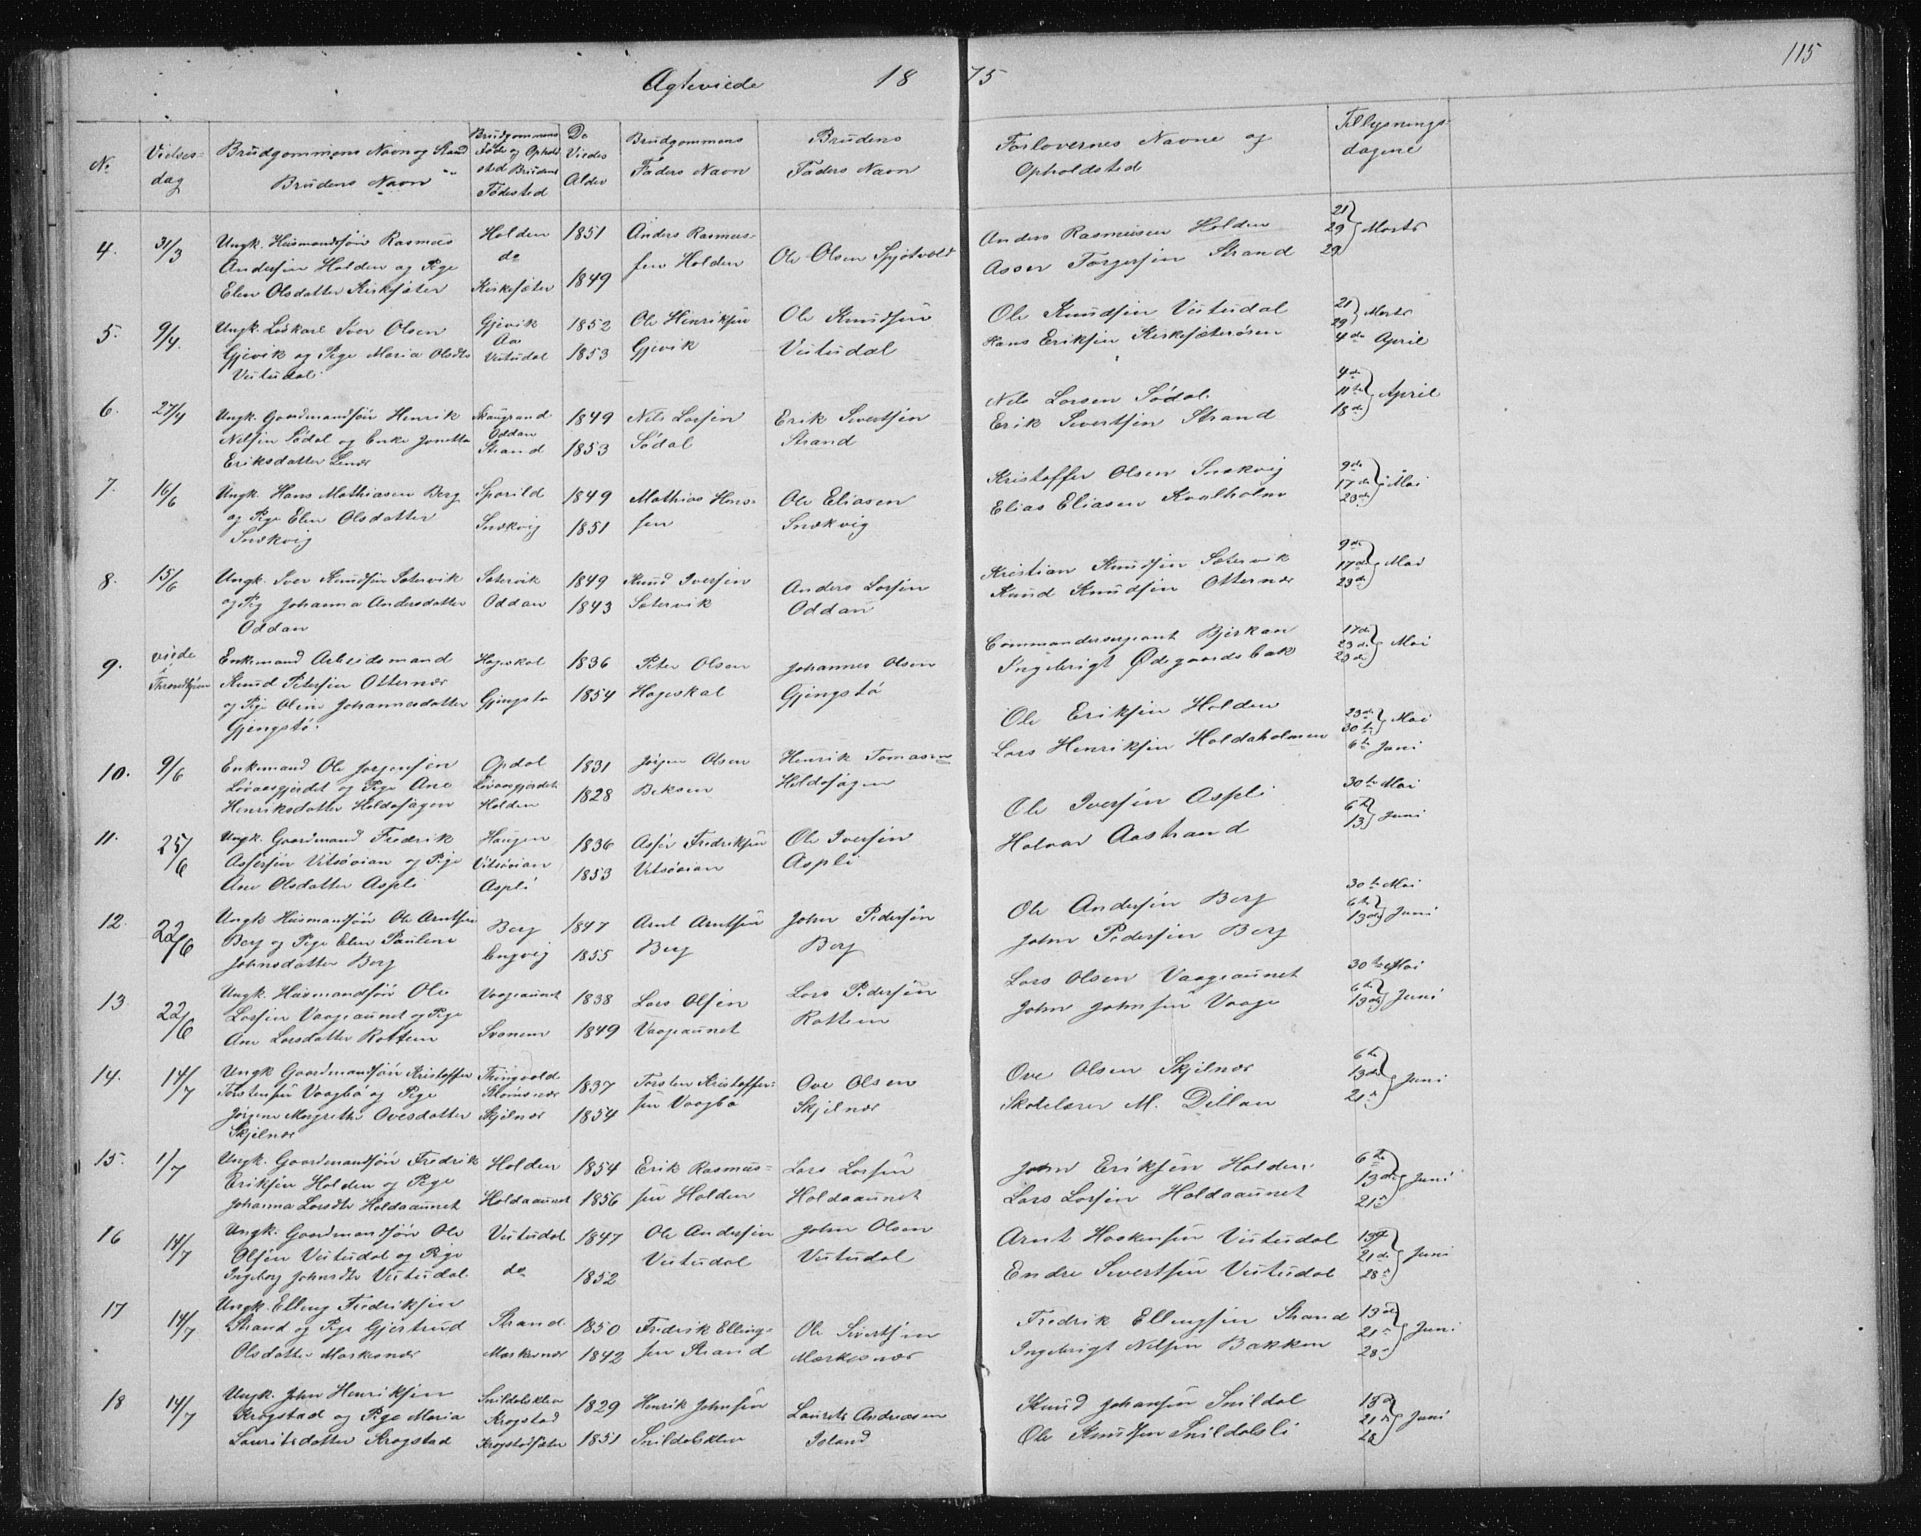 115
Ægteviede 18 75
No
Vielses-
dag
Brudgommens Navn og Stand
Brudens Navn
Brudgommens
Føde og Ophold
sted Brudens
Fødested
De
Viedes
Alder
Brudgommens
Faders Navn
Brudens
Faders Navn
Forlovernes Navne og
Opholdsted
Tillysnings-
dagene
4. 31/3
Ungk. Husmandsøn Rasmus
Andersen Holden og Pige
Elen Olsdatter Kirksæter
Holden
do
Kirksæter
1851
1849
Anders Rasmus-
sen Holden
Ole Olsen Spjøtvold
Anders Rasmusen Holden
Asser Torgersen Strand
21
29
29
Marts
5. 9/4.
Ungk. Løskarl Iver Olsen
Gjevik og Pige Maria Olsdtr
Vutudal
Gjevik
Aa
Vutudal
1852
1853
Ole Henriksen
Gjevik
Ole Knudsen
Vutudal
Ole Knudsen Vutudal
Hans Eriksen Kirksæterøren
21
29
Marts
4de April
6. 27/4
Ungk. Gaardmandsøn Henrik
Nilsen Sødal og Enke Jonetta
Eriksdatter Lenes
Skaugrand
Oddan
Strand
1849
1853
Nils Larsen
Sødal
Erik Sivertsen
Strand
Nils Larsen Sødal
Erik Sivertsen Strand
4de
11te
18de
April
7. 16/6
Ungk. Hans Mathiasen Berg
og Pige Elen Olsdatter
Snekvig
Sporild
Snekvig
1849
1851
Mathias Han-
sen
Ole Eliasen
Snekvig
Kristoffer Olsen Snekvig
Elias Eliasen Kvalholm
9de
17de
23de
Mai
8. 15/6
Ungk. Iver Knudsen Satervik
og Pig Johanna Andersdatter
Oddan
Satervik
Oddan
1849
1843
Knud Iversen
Satervik
Anders Larsen
Oddan
Kristian Knudsen Satervik
Knud Knudsen Otternes
9de
17de
23de
Mai
9. viede
i
Throndhjem
Enkemand Arbeidsmand
Knud Petersen Otternes
og Pige Oline Johannesdatter
Gjengstø.
Hageskal
Gjengstø
1836
1854
Peter Olsen
Hageskal
Johannes Olsen
Gjengstø
Commandersergeant Bjerkan
Ingebrigt Ødegaardsbak
17de
23de
23de
Mai
10. 9/6
Enkemand Ole Jørgensen
Løvaasgjerdet og Pige Ane
Henriksdatter Holdasagen
Opdal
Løvaasgjerdet
Holden
1831
1828
Jørgen Olsen
Beksen
Henrik Tomasen
Holdasagen
Ole Eriksen Holden
Lars Henriksen Holdaholmen
23de
30te
Mai
6te Juni
11. 25/6
Ungk. Gaardmand Fredrik
Assersen Vitsøvian og Pige
Ane Olsdatter Aspli
Haugen
Vitsøvian
Aspli
1836
1853
Asser Fredriksen
Vitsøvian
Ole Iversen
Aspli
Ole Iversen Aspli
Halvar Aastrand
30te Mai
6te
13
Juni
12. 22/6
Ungk Husmandsøn Ole Arntsen
Berg og Pige Elen Pauline
Johnsdatter Berg
Berg
Engvig
1847
1855
Arnt Arntsen
Berg
John Pedersen
Berg
Ole Andersen Berg
John Pedersen Berg
30te Mai
6te
13de
Juni
13 22/6
Ungk. Husmandsøn Ole
Larsen Vaageaunet og Pige
Ane Larsdatter Rottem
Vaageaunet
Svanem
1838
1849
Lars Olsen
Vaageaunet
Lars Pedersen
Rottem
Lars Olsen Vaageaunet
John Johnsen Vaage
30te Mai
6te
13de
Juni
14. 14/7
Ungk Gaardmandsøn Kristoffer
Torstensen Vaagbø og Pige
Jørgine Margrethe Ovesdatter
Skjelnes
Thingvold
Skjelnes
1837
1854
Torsten Kristoffer-
sen Vaagbø
Ove Olsen
Skjelnes
Ove Olsen Skjelnes
Skolelærer M. Dillan
6te
13de
21e
Juni
15. 1/7
Ungk. Gaardmandsøn Fredrik
Eriksen Holden og Pige
Johanna Larsdtr Holdaaunet
Holden
Holdaaunet
1854
1856
Erik Rasmus-
sen Holden
Lars Larsen
Holdaaunet
John Eriksen Holden
Lars Larsen Holdaaunet
6te
13de
21e
Juni
16 14/7
Ungk. Gaardmandsøn Ole
Olsen Vutudal og Pige
Ingeborg Johnsdtr Vutudal
Vutudal
do
1847
1852
Ole Andersen
Vutudal
John Olsen
Vutudal
Arnt Haakensen Vutudal
Endre Sivertsen Vutudal
13de
21de
28e
Juni
17 14/7
Ungk. Elling Fredriksen
Strand og Pige Gjertrud
Olsdatter Markesnes
Strand
Markesnes
1850
1842
Fredrik Elling-
sen Strand
Ole Sivertsen
Markesnes
Fredrik Ellingsen Strand
Ingebrigt Nilsen Bakken
13de
21e
28e
Juni
18 14/7
Ungk. John Henriksen
Krogstad og Pige Maria
Lauritsdatter Krogstad
Snildalskleiv
Krogstad
Krogstadsæter
1829
1851
Henrik Johnsen
Snildalskleiv
Laurits Andreasen
Island
Knud Johansen Snildal
Ole Knudsen Snildalsli
13de
21de
28
Juni